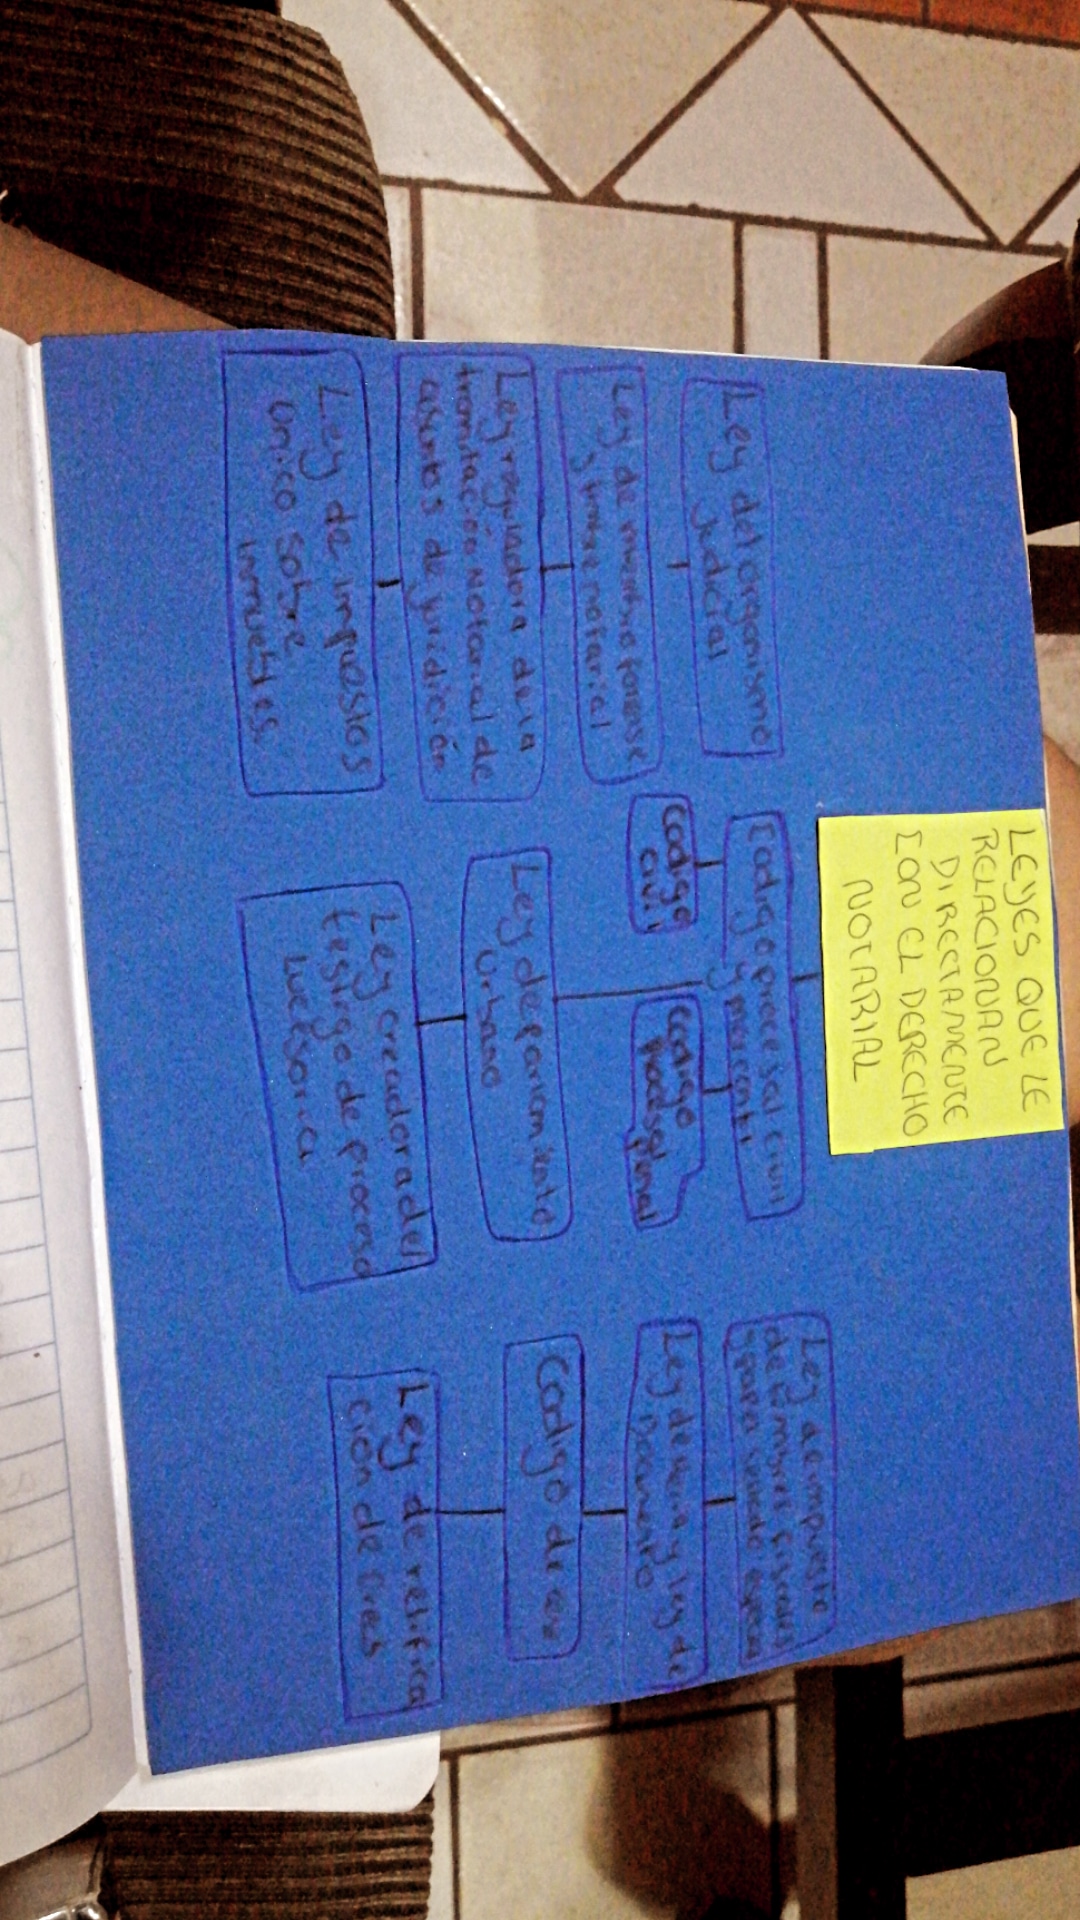 LEYES QUE LE
RELACIONAN
DIRECTAMENTE
CON EL DERECHO
NOTARIAL
Ley del organismo
judicial
Ley de timbre forense
y timbre notarial
Ley reguladora de la
tramitación Notarial de
asuntos de juridición
Ley de impuestos
único sobre
inmuebles.
Codigo procesal civil
y mercantil
Codigo
civil
Codigo
procesal penal
Ley de parcelamiento
Urbano
Ley creadora del
de proceso
sucesorio
Ley de impuesto
de timbres fiscales
y papel sellado especial
Ley de
Documento
Codigo de
Ley de retifica
ción de